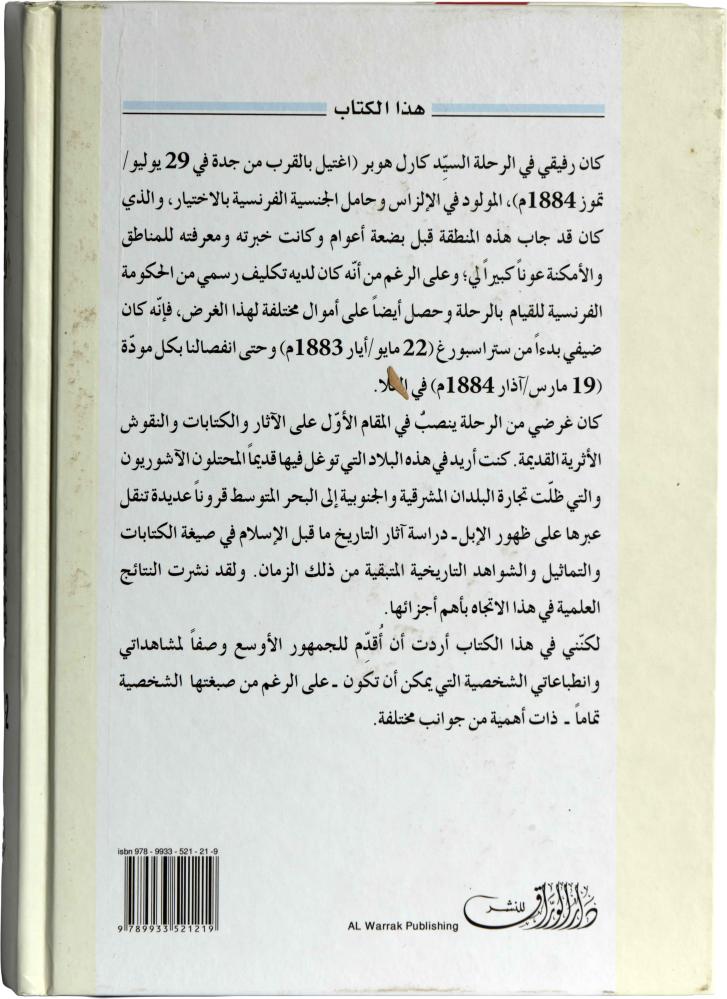 هذا الكتاب
كان رفيقي في الرحلة السيّد كارل هوبر (اغتيل بالقرب من جدة في 29 يوليو/
تموز 1884م)، المولود في الإلزاس وحامل الجنسية الفرنسية بالاختيار، والذي
كان قد جاب هذه المنطقة قبل بضعة أعوام وكانت خبرته ومعرفته للمناطق
والأمكنة عوناً كبيراً لي؛ وعلى الرغم من أنّه كان لديه تكليف رسمي من الحكومة
الفرنسية للقيام بالرحلة وحصل أيضاً على أموال مختلفة لهذا الغرض، فإنّه كان
ضيفي بدءاً من ستراسبورغ (22 مايو/أيار 1883م) وحتى انفصالنا بكل مودّة
(19 مارس/آذار 1884م) في
كان غرضي من الرحلة ينصبُ في المقام الأوّل على الآثار والكتابات والنقوش
الأثرية القديمة. كنت أريد في هذه البلاد التي توغل فيها قديماً المحتلون الآشوريون
والتي ظلّت تجارة البلدان المشرقية والجنوبية إلى البحر المتوسط قروناً عديدة تنقل
عبرها على ظهور الإبل ـ دراسة آثار التاريخ ما قبل الإسلام في صيغة الكتابات
والتماثيل والشواهد التاريخية المتبقية من ذلك الزمان. ولقد نشرت النتائج
العلمية في هذا الاتجاه بأهم أجزائها.
لكنّني في هذا الكتاب أردت أن أُقدّم للجمهور الأوسع وصفاً لمشاهداتي
وانطباعاتي الشخصية التي يمكن أن تكون ـ على الرغم من صبغتها الشخصية
تماماً ـ ذات أهمية من جوانب مختلفة.
isbn 978 - 9933 - 521 - 21 -9
9 789933 521219
دار الورّاق للنشر
AL Warrak Publishing